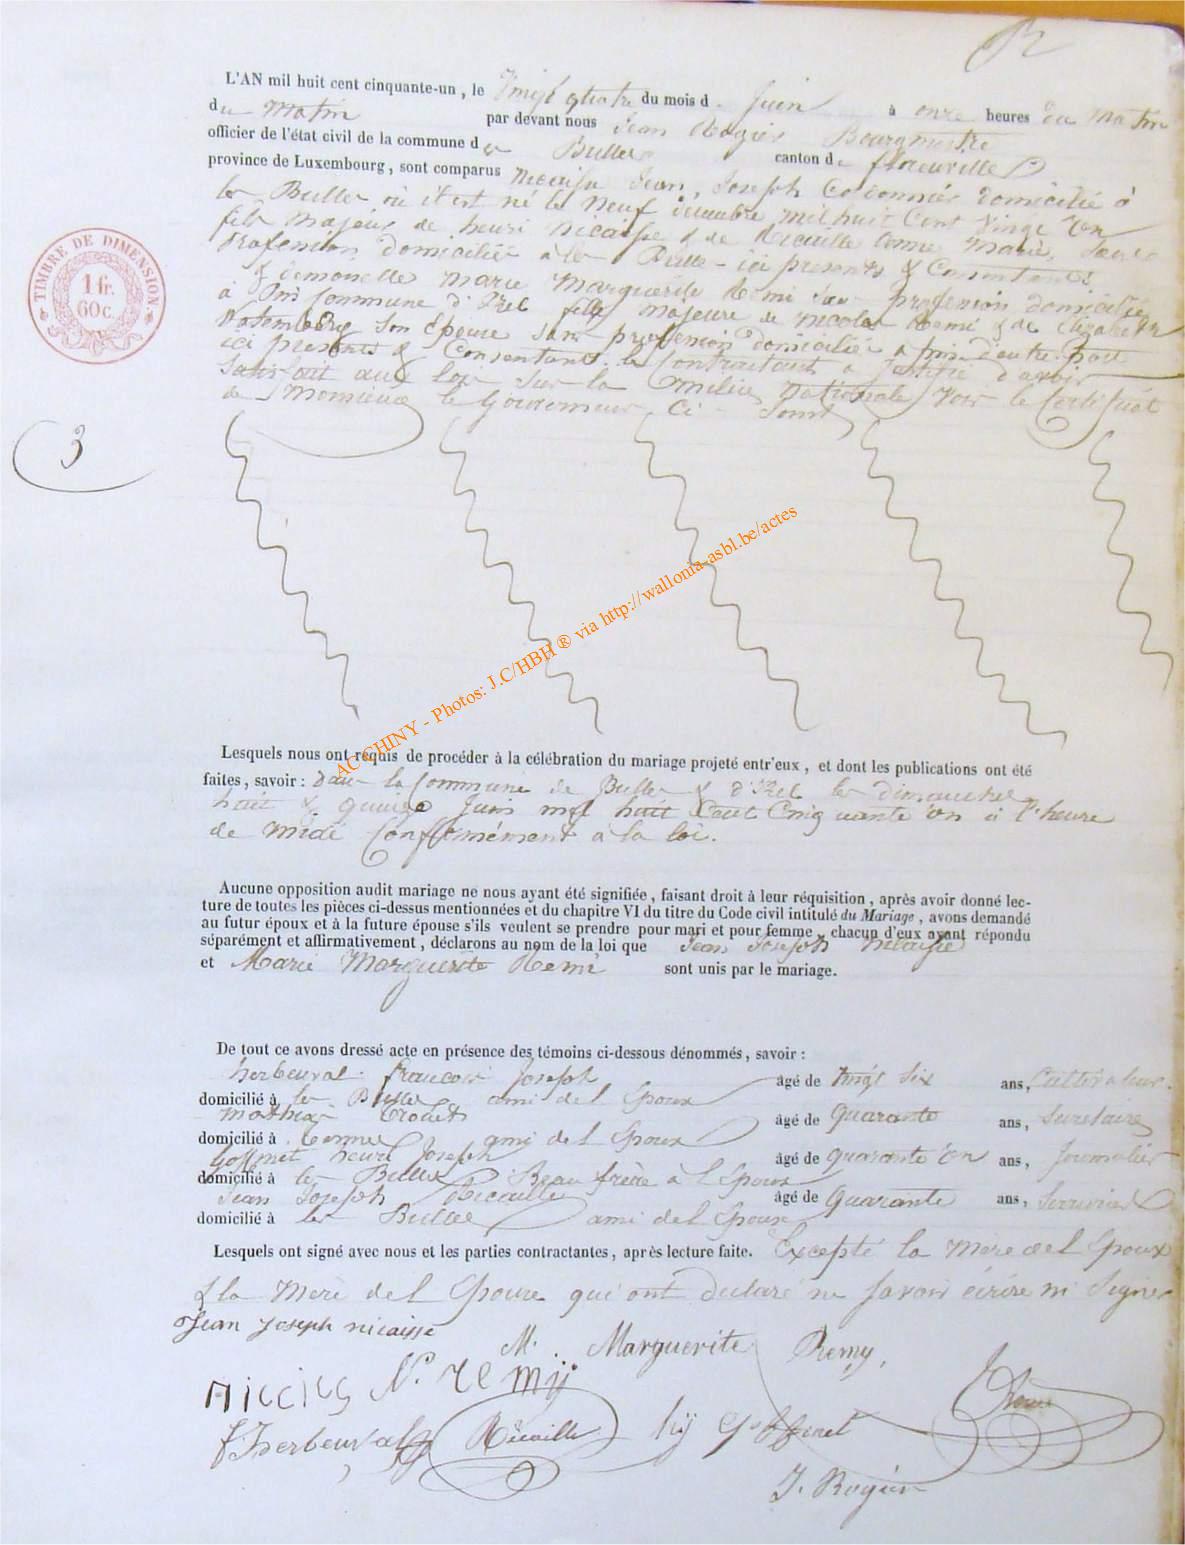 L'AN mil huit cent cinquante-un, le Vingt quatre du mois d. Juin à onze heures du Matin
du Matin par devant nous Jean Rogier Bourgmestre
officier de l'état civil de la commune de Bulles canton de florenville
province de Luxembourg, sont comparus Nicaise Jean, Joseph Cordonnier domicilié à
les Bulles où il est né le Neuf décembre mil huit Cent Vingt
fils Majeur de henri Nicaise & de Récaille Marie, Sans
Profession, domiciliés à les Bulles - ici présents & Consentants
& demoiselle Marie Marguerite Remi Sans profession domiciliée
à Pin Commune d'Izel fille majeure de Nicolas Remi & de Elizabeth
son Epouse sans profession domiciliés à pin d'autre part
ici présents & Consentants. le Contractant a Justifié d'avoir
Satisfait aux lois sur la milice Nationale Voir le Certificat
de Monsieur le Gouverneur Ci - Joint
TIMBRE DE DIMENSION
1 fr.
60 c.
3
AC CHINY - Photos: J.C/HBH ® via http://wallonia-asbl.be/actes
Lesquels nous ont requis de procéder à la célébration du mariage projeté entr'eux, et dont les publications ont été
faites, savoir: dans la Commune de Bulles & d'Izel les dimanches
huit & quinze Juin mil huit Cent Cinquante un à l'heure
de midi Conformément à la loi.
Aucune opposition audit mariage ne nous ayant été signifiée, faisant droit à leur réquisition, après avoir donné lec-
ture de toutes les pièces ci-dessus mentionnées et du chapitre VI du titre du Code civil intitulé du Mariage, avons demandé
au futur époux et à la future épouse s'ils veulent se prendre pour mari et pour femme, chacun d'eux ayant répondu
séparément et affirmativement, déclarons au nom de la loi que Jean Joseph Nicaise
et Marie Marguerite Remi sont unis par le mariage.
De tout ce avons dressé acte en présence des témoins ci-dessous dénommés, savoir:
herbeuval françois Joseph âgé de vingt six ans, Cultivateur.
domicilié à les Bulles ami de l'Epoux
Mathieu âgé de quarante ans, Secretaire
domicilié à ami de l'Epoux
Goffinet henri Joseph âgé de quarante un ans, Journalier
domicilié à les Bulles Beau frère à l'Epoux
Jean Joseph Récaille âgé de quarante ans, Serrurier
domicilié à les Bulles ami de l'Epoux
Lesquels ont signé avec nous et les parties contractantes, après lecture faite. Excepté la Mère de l'Epoux
& la Mère de l'Epouse qui ont déclaré ne savoir écrire ni Signer
Jean Joseph nicaisse
M. Marguerite Remy,
N. remij
f J herbeuval Récaille hij Goffinet
J. Rogier